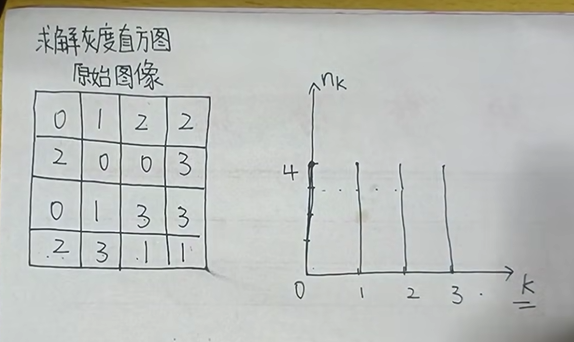 求解灰度直方图
原始图像
0 1 2 2
2 0 0 3
0 1 3 3
2 3 1 1
nk
4
0 1 2 3 k